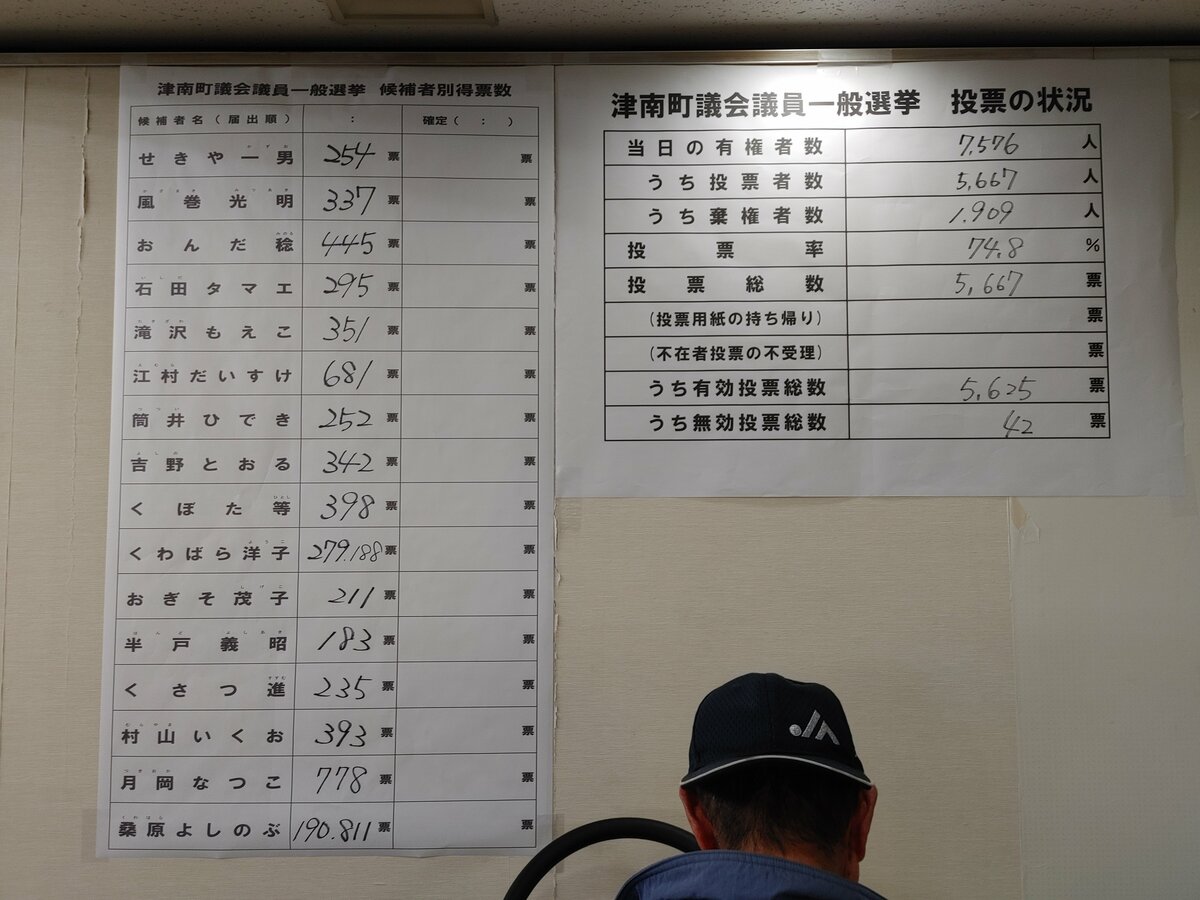 津南町議会議員一般選挙 候補者別得票数
候補者名(届出順) : 確定( : )
せきや一男 254票 票
風巻光明 337票 票
おんだ稔 445票 票
石田タマエ 295票 票
滝沢もえこ 351票 票
江村だいすけ 681票 票
筒井ひでき 252票 票
吉野とおる 342票 票
くぼた等 398票 票
くわばら洋子 279.188票 票
おぎそ茂子 211票 票
半戸義昭 183票 票
くさつ進 235票 票
村山いくお 393票 票
月岡なつこ 778票 票
桑原よしのぶ 190.811票 票
津南町議会議員一般選挙 投票の状況
当日の有権者数 7,576人
うち投票者数 5,667人
うち棄権者数 1.909人
投票率 74.8%
投票総数 5,667票
(投票用紙の持ち帰り) 票
(不在者投票の不受理) 票
うち有効投票総数 5,625票
うち無効投票総数 42票
JA